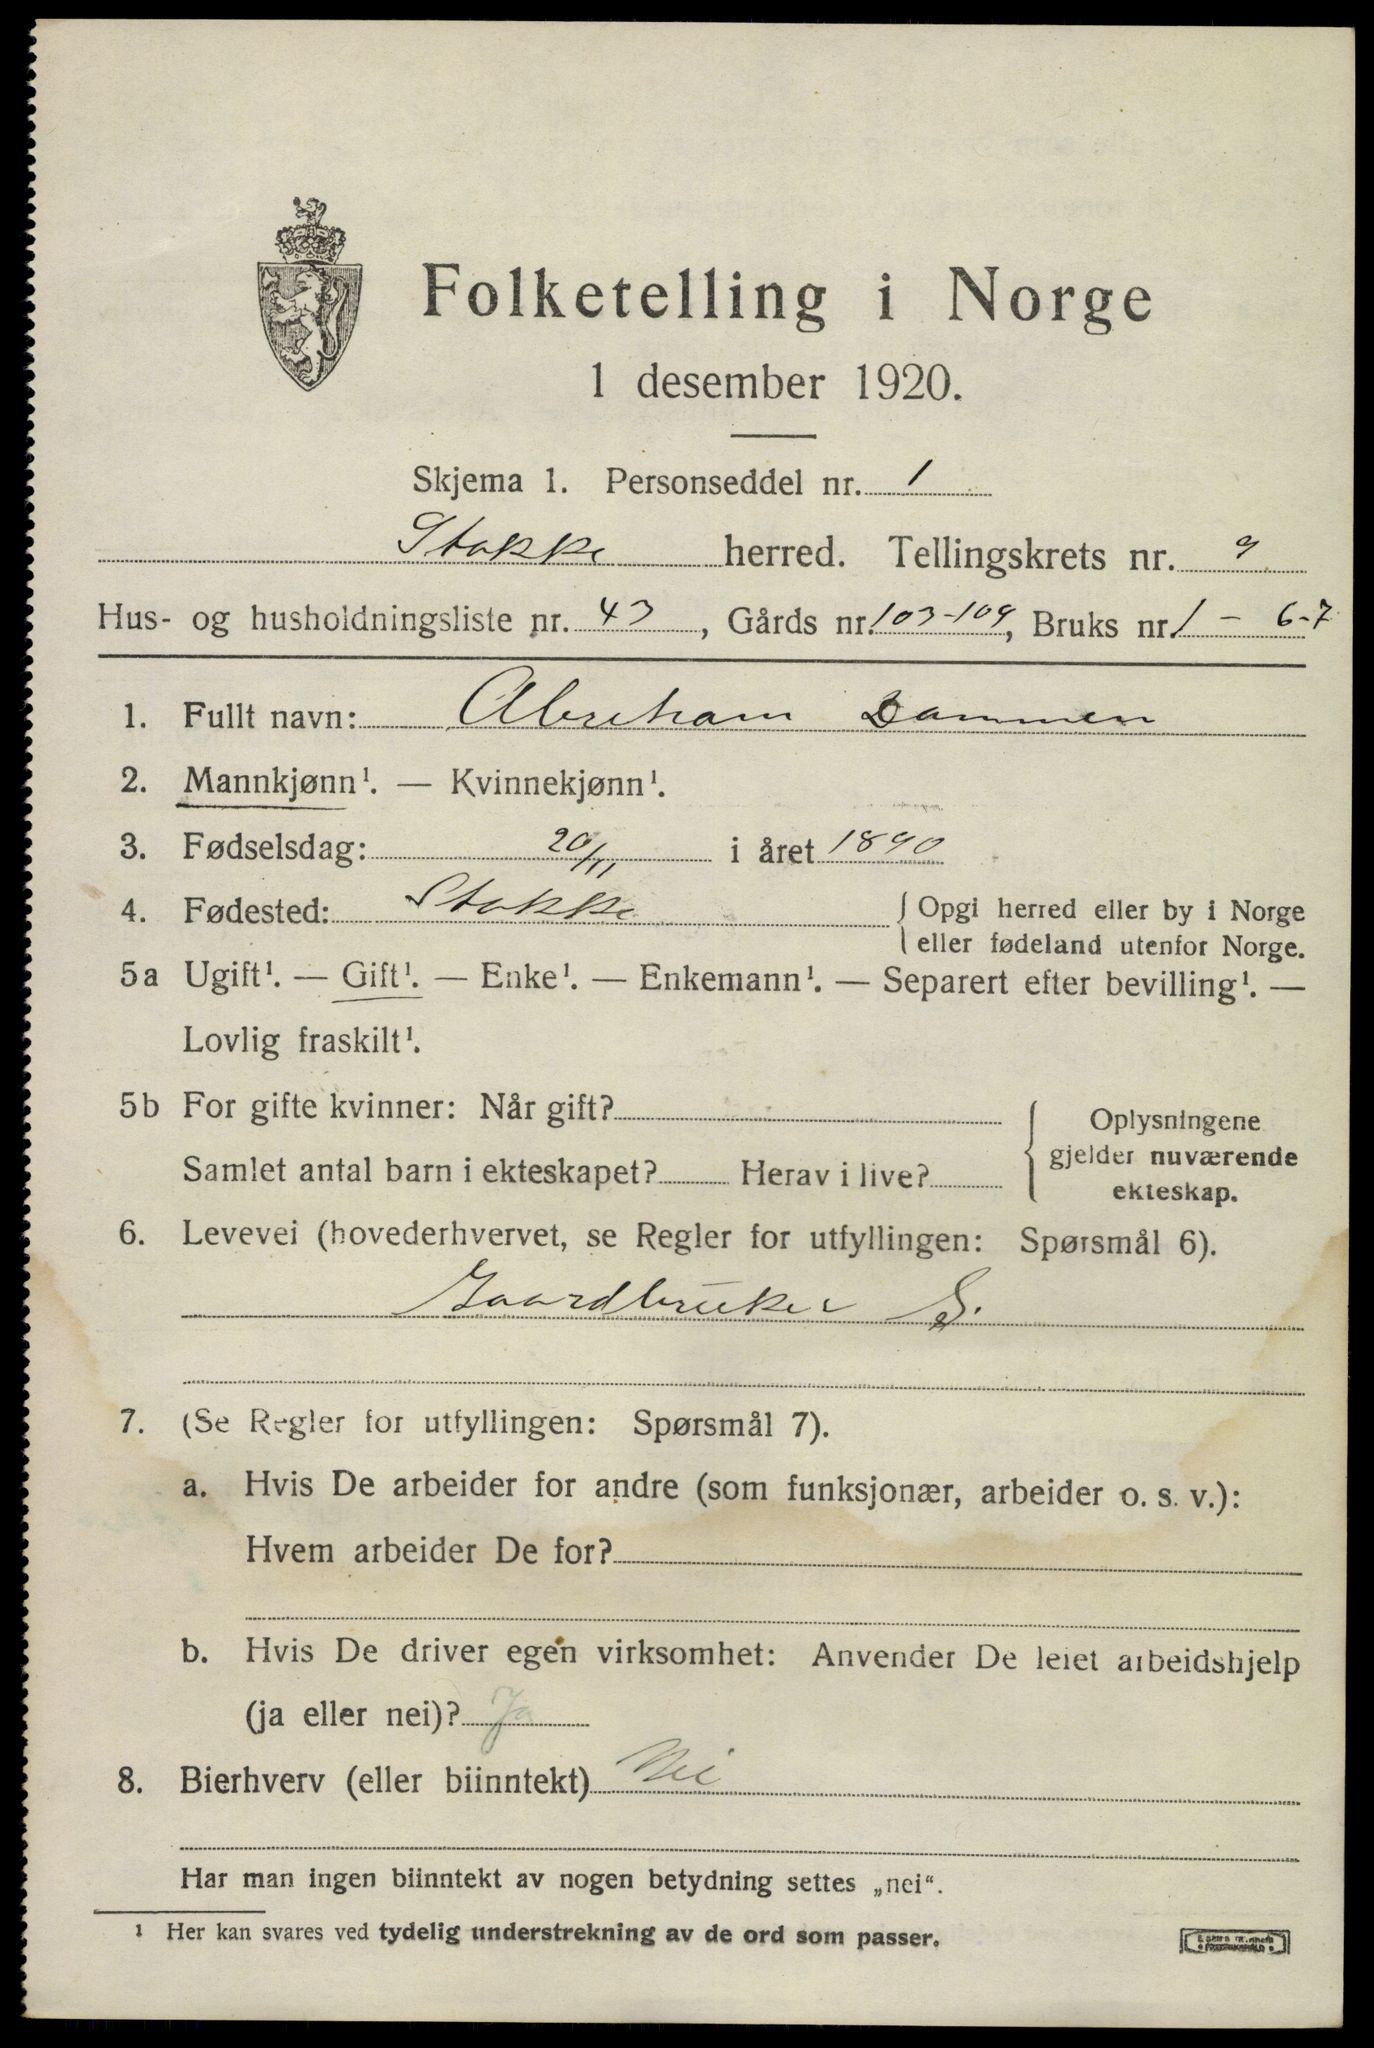 Folketelling i Norge
1 desember 1920.
Skjema 1. Personseddel nr. 1
Stokke herred. Tellingskrets nr. 9
Hus- og husholdningsliste nr. 43, Gårds nr. 103-109, Bruks nr. 1 - 6-7
1. Fullt navn: Abraham Dammen
2. Mannkjønn¹. — Kvinnekjønn¹.
3. Fødselsdag: 20/11 i året 1890
4. Fødested: Stokke { Opgi herred eller by i Norge
eller fødeland utenfor Norge.
5a Ugift¹. — Gift¹. — Enke¹. — Enkemann¹. — Separert efter bevilling¹. —
Lovlig fraskilt¹.
5b For gifte kvinner: Når gift?
Samlet antal barn i ekteskapet? Herav i live?
Oplysningene
gjelder nuværende
ekteskap.
6. Levevei (hovederhvervet, se Regler for utfyllingen: Spørsmål 6).
Gaardbruker S.
7. (Se Regler for utfyllingen: Spørsmål 7).
a. Hvis De arbeider for andre (som funksjonær, arbeider o. s. v.):
Hvem arbeider De for?
b. Hvis De driver egen virksomhet: Anvender De leiet arbeidshjelp
(ja eller nei)? Ja
8. Bierhverv (eller biinntekt) Nei
Har man ingen biinntekt av nogen betydning settes „nei“.
¹ Her kan svares ved tydelig understrekning av de ord som passer.